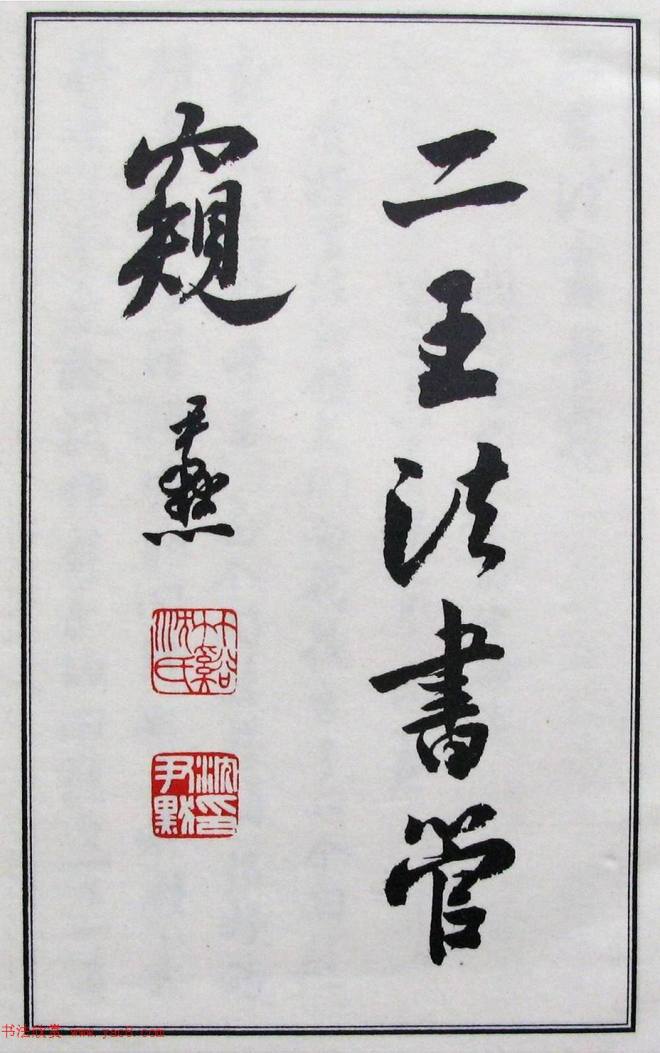 二王法書管
窺
尹默
竹谿沈氏
沈尹默印
书法欣赏 www.yac8.com